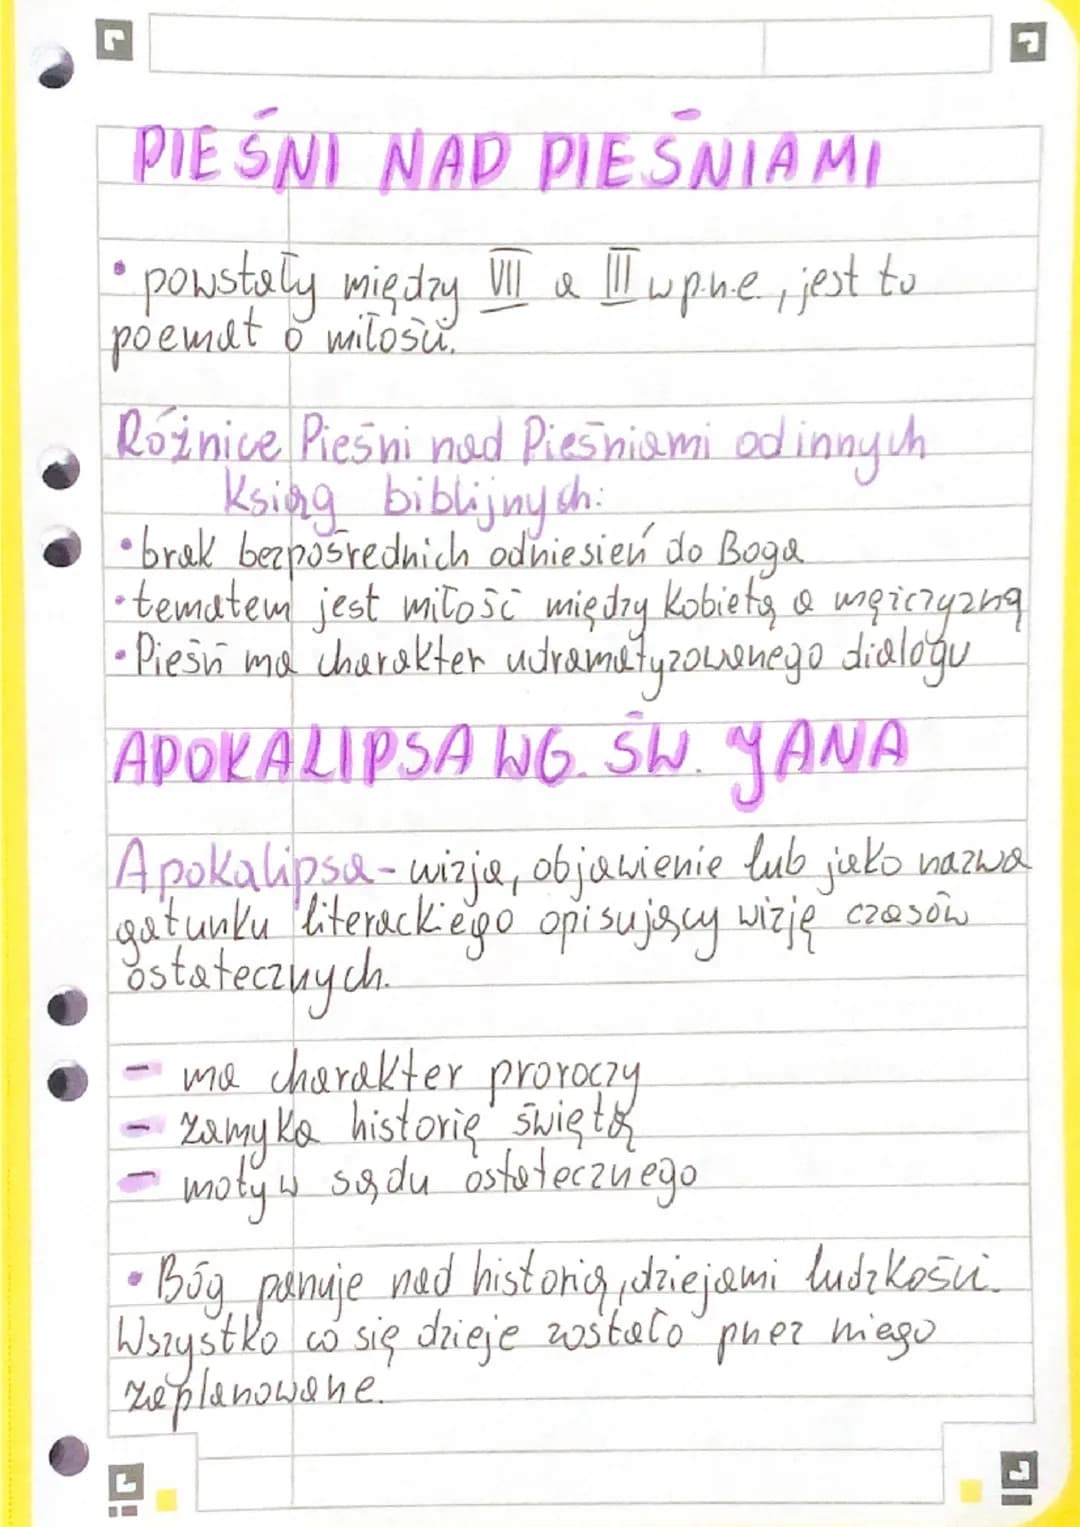 PIEŚNI NAD PIEŚNIAMI
• powstały między VII a III w p.n.e., jest to
poemat o miłości.
Różnice Pieśni nad Pieśniami od innych
Ksiąg biblijnych:
• brak bezpośrednich odniesień do Boga
• tematem jest miłość między kobietą a mężczyzną
• Pieśń ma charakter udramatyzowanego dialogu
APOKALIPSA WG. ŚW. JANA
Apokalipsa - wizja, objawienie lub jako nazwa
gatunku literackiego opisujący wizję czasów
ostatecznych.
- ma charakter proroczy
- zamyka historię świętą
- motyw sądu ostatecznego
• Bóg panuje nad historią, dziejami ludzkości.
Wszystko co się dzieje zostało przez niego
zaplanowane.